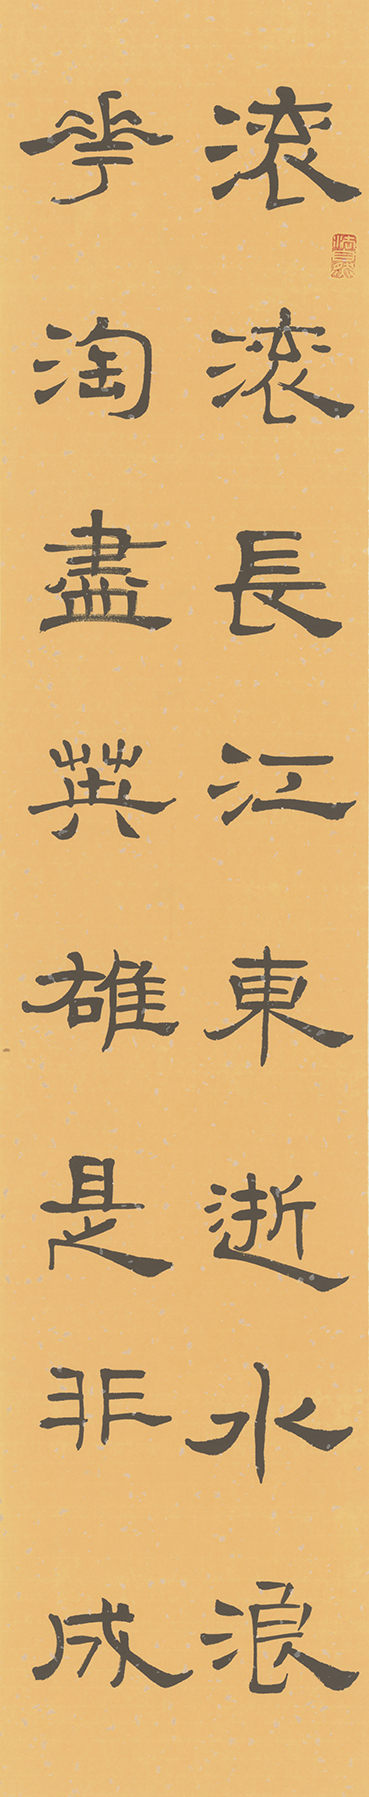 滚滚長江東逝水浪
花淘盡英雄是非成